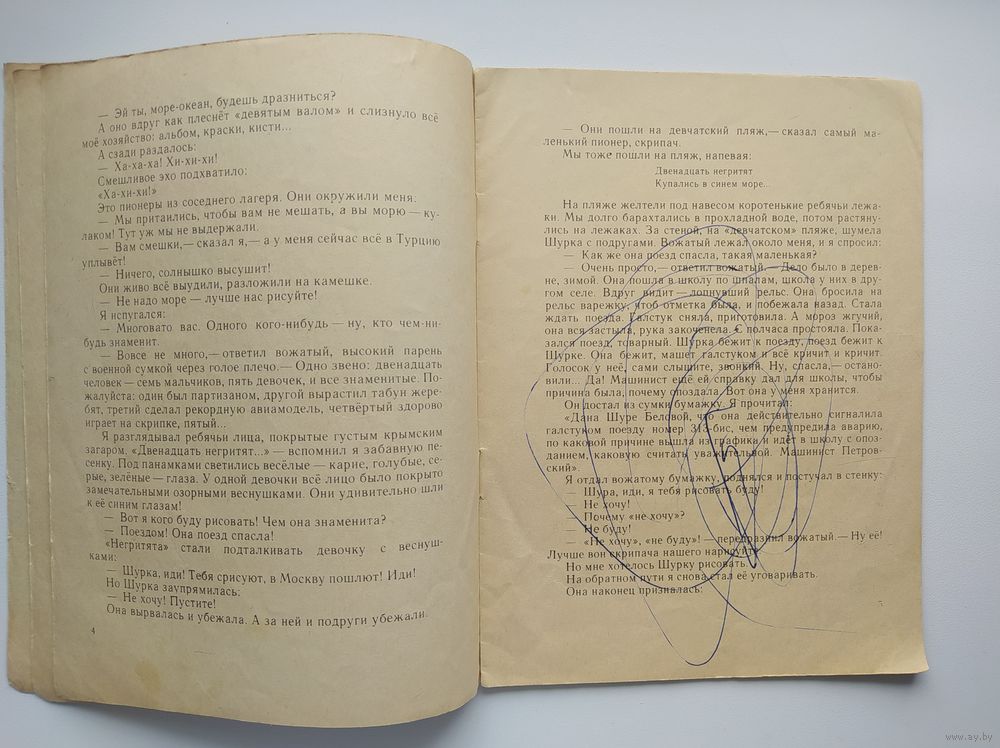 — Эй ты, море-океан, будешь дразниться?
А оно вдруг как плеснёт «девятым валом» и слизнуло всё
моё хозяйство: альбом, краски, кисти...
А сзади раздалось:
— Ха-ха-ха! Хи-хи-хи!
Смешливое эхо подхватило:
«Ха-хи-хи!»
Это пионеры из соседнего лагеря. Они окружили меня.
— Мы притаились, чтобы вам не мешать, а вы морю — ку-
лаком! Тут уж мы не выдержали.
— Вам смешки,— сказал я,— а у меня сейчас всё в Турцию
уплывёт!
— Ничего, солнышко высушит!
Они живо всё выудили, разложили на камешке.
— Не надо море — лучше нас рисуйте!
Я испугался:
— Многовато вас. Одного кого-нибудь — ну, кто чем-ни-
будь знаменит.
— Вовсе не много,— ответил вожатый, высокий парень
с военной сумкой через голое плечо.— Одно звено: двенадцать
человек — семь мальчиков, пять девочек, и все знаменитые. По-
жалуйста: один был партизаном, другой вырастил табун жере-
бят, третий сделал рекордную авиамодель, четвёртый здорово
играет на скрипке, пятый...
Я разглядывал ребячьи лица, покрытые густым крымским
загаром. «Двенадцать негритят...» — вспомнил я забавную пе-
сенку. Под панамками светились весёлые — карие, голубые, се-
рые, зелёные — глаза. У одной девочки всё лицо было покрыто
замечательными озорными веснушками. Они удивительно шли
к её синим глазам!
— Вот я кого буду рисовать! Чем она знаменита?
— Поездом! Она поезд спасла!
«Негритята» стали подталкивать девочку с веснуш-
ками:
— Шурка, иди! Тебя срисуют, в Москву пошлют! Иди!
Но Шурка заупрямилась:
— Не хочу! Пустите!
Она вырвалась и убежала. А за ней и подруги убежали.
4
— Они пошли на девчатский пляж,— сказал самый ма-
ленький пионер, скрипач.
Мы тоже пошли на пляж, напевая:
Двенадцать негритят
Купались в синем море...
На пляже желтели под навесом коротенькие ребячьи лежа-
ки. Мы долго барахтались в прохладной воде, потом растяну-
лись на лежаках. За стеной, на «девчатском» пляже, шумела
Шурка с подругами. Вожатый лежал около меня, и я спросил:
— Как же она поезд спасла, такая маленькая?
— Очень просто,— ответил вожатый.— Дело было в дерев-
не, зимой. Она пошла в школу по шпалам, школа у них в дру-
гом селе. Вдруг видит — лопнувший рельс. Она бросила на
рельс варежку, чтоб отметка была, и побежала назад. Стала
ждать поезда. Галстук сняла, приготовила. А мороз жгучий,
она вся застыла, рука закоченела. С полчаса простояла. Пока-
зался поезд, товарный. Шурка бежит к поезду, поезд бежит к
Шурке. Она бежит, машет галстуком и всё кричит и кричит.
Голосок у неё, сами слышите, звонкий. Ну, спасла,— остано-
вили... Да! Машинист ещё ей справку дал для школы, чтобы
причина была, почему опоздала. Вот она у меня хранится.
Он достал из сумки бумажку. Я прочитал:
«Дана Шуре Беловой, что она действительно сигналила
галстуком поезду номер 313-бис, чем предупредила аварию,
по каковой причине вышла из графика и идёт в школу с опоз-
данием, каковую считать уважительной. Машинист Петров-
ский».
Я отдал вожатому бумажку, поднялся и постучал в стенку:
— Шура, иди, я тебя рисовать буду!
— Не хочу!
— Почему «не хочу»?
— Не буду!
— «Не хочу», «не буду»! — передразнил вожатый.— Ну её!
Лучше вон скрипача нашего нарисуйте.
Но мне хотелось Шурку рисовать.
На обратном пути я снова стал её уговаривать.
Она наконец призналась:
5
www.ay.by